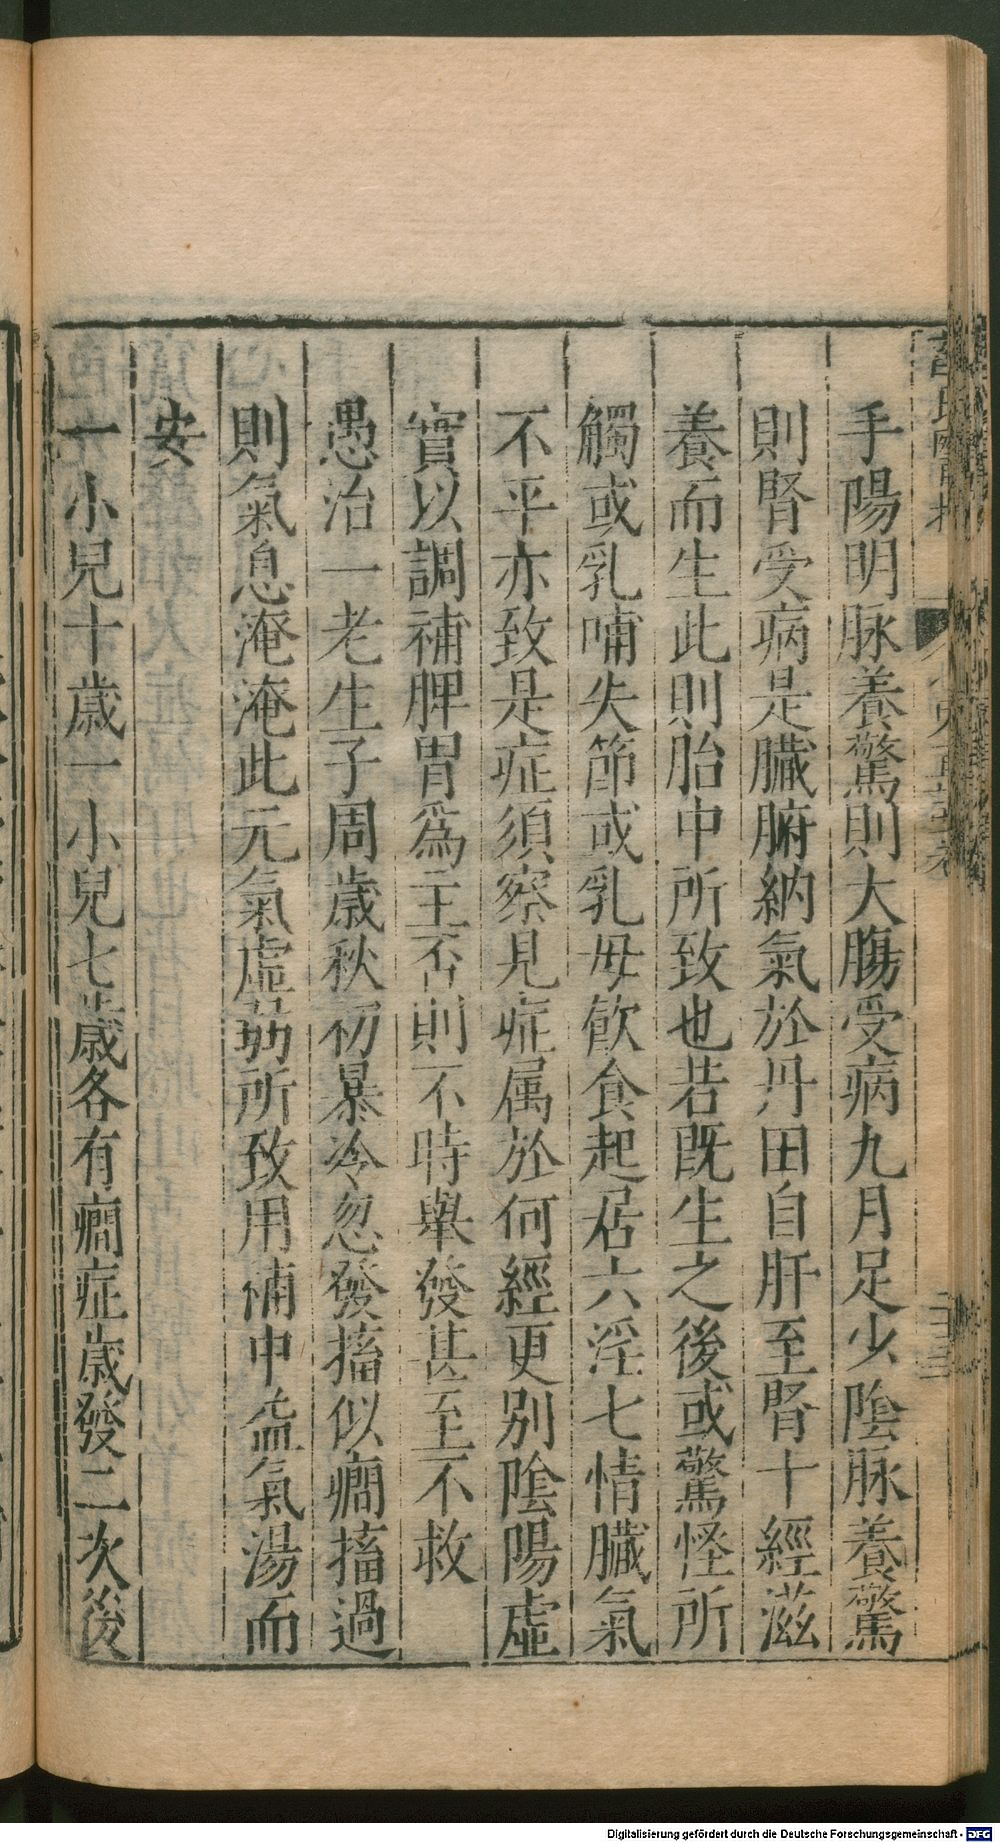 手陽明脉養驚則大腸受病九月足少陰脉養驚
則腎受病是臟腑納氣於丹田自肝至腎十經滋
養而生此則胎中所致也若既生之後或驚怪所
觸或乳哺失節或乳母飲食起居六淫七情臟氣
不平亦致是症須察見症属於何經更别陰陽虛
實以調補脾胃爲主否則不時舉發甚至不救
愚治一老生子周歳秋初暴冷忽發搐似癎搐過
則氣息淹淹此元氣虛弱所致用補中益氣湯而
安
一小兒十歳一小兒七歳各有癎症歳發二次後
Digitalisierung gefördert durch die Deutsche Forschungsgemeinschaft - DFG